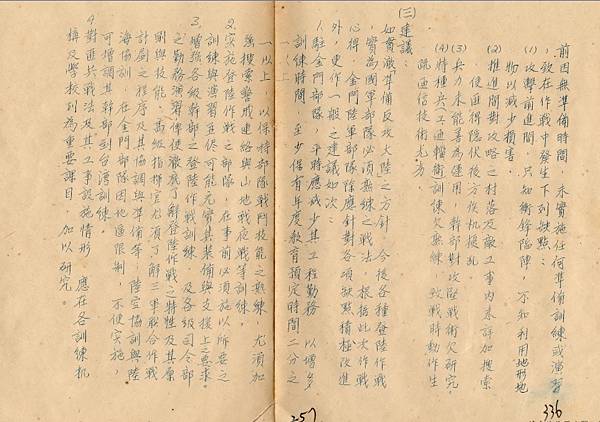 前因無準備時間,未實施任何準備訓練或演習
致在作戰中發生下列缺點:
(1)攻擊前進間,只知衝鋒陷陣,不知利用地形地
物以減少損害。
(2)推進間對攻略之村落及敵工事內未詳加搜索
使匪得隱伏後方伺機擾亂。
(3)兵力未能善為運用,幹部對攻堅戰術欠研究。
(4)特種兵工通輜衛訓練欠熟練,致戰時動作生
疏通信技術尤劣。
(三)建議:
如貫澈「準備反攻大陸之方針,今後各種登陸作戰
實為國軍部隊必須熟練之戰法,根據此次作戰
心得,金門陸軍部隊除應針對各項缺點積極改進
外,更作一般之建議如次:
1.駐金門部隊,平時應減少其工程勤務,以增多
訓練時間,至少保有年度教育預定時間二分之
一以上,以保持部隊戰鬥技能之熟練,尤須加
強搜索警戒連絡與山地戰夜戰等訓練。
2.實施登陸作戰之部隊,在事前必須施以所要之
訓練與演習且儘可能充實其裝備與支援上要求。
3.增強各級幹部之登陸作戰訓練,及各級司令部
之勤務演習俾使澈底了解登陸作戰之特性及其原
則與技能、高級指揮官尤須了解三軍聯合作戰
計劃之程序及其協調與準備等,陸空協訓與陸
海協訓,在金門部隊因地區限制,不便實施,
可增調其幹部到台灣訓練。
4.對匪共戰法及其工事設施情形 應在各訓練機
構及學校列為重要課目,加以研究。
257
336